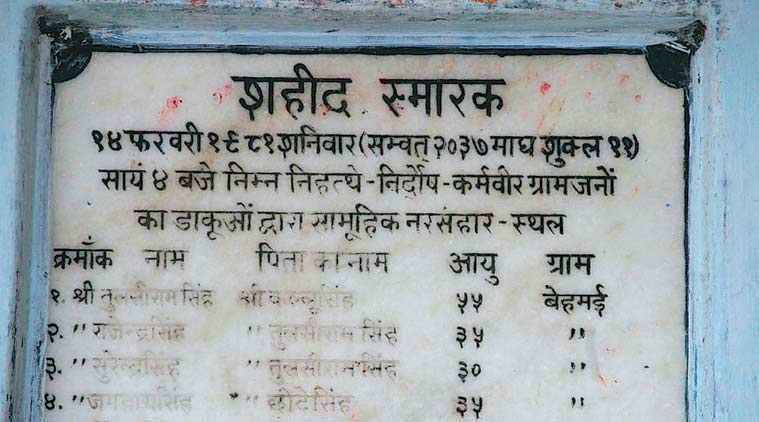 शहीद स्मारक
१४ फरवरी १९८१ शनिवार (सम्वत् २०३७ माघ शुक्ल ११)
सायं ४ बजे निम्न निहत्थे - निर्दोष - कर्मवीर ग्रामजनों
का डाकूओं द्वारा सामूहिक नरसंहार - स्थल
क्रमाँक नाम पिता का नाम आयु ग्राम
१. श्री तुलसीराम सिंह श्री ५५ बेहमई
२. " राजेन्द्रसिंह " तुलसीराम सिंह ३५ "
३. " सुरेन्द्रसिंह " तुलसीराम सिंह ३० "
४. " " छोटेसिंह ३५ "